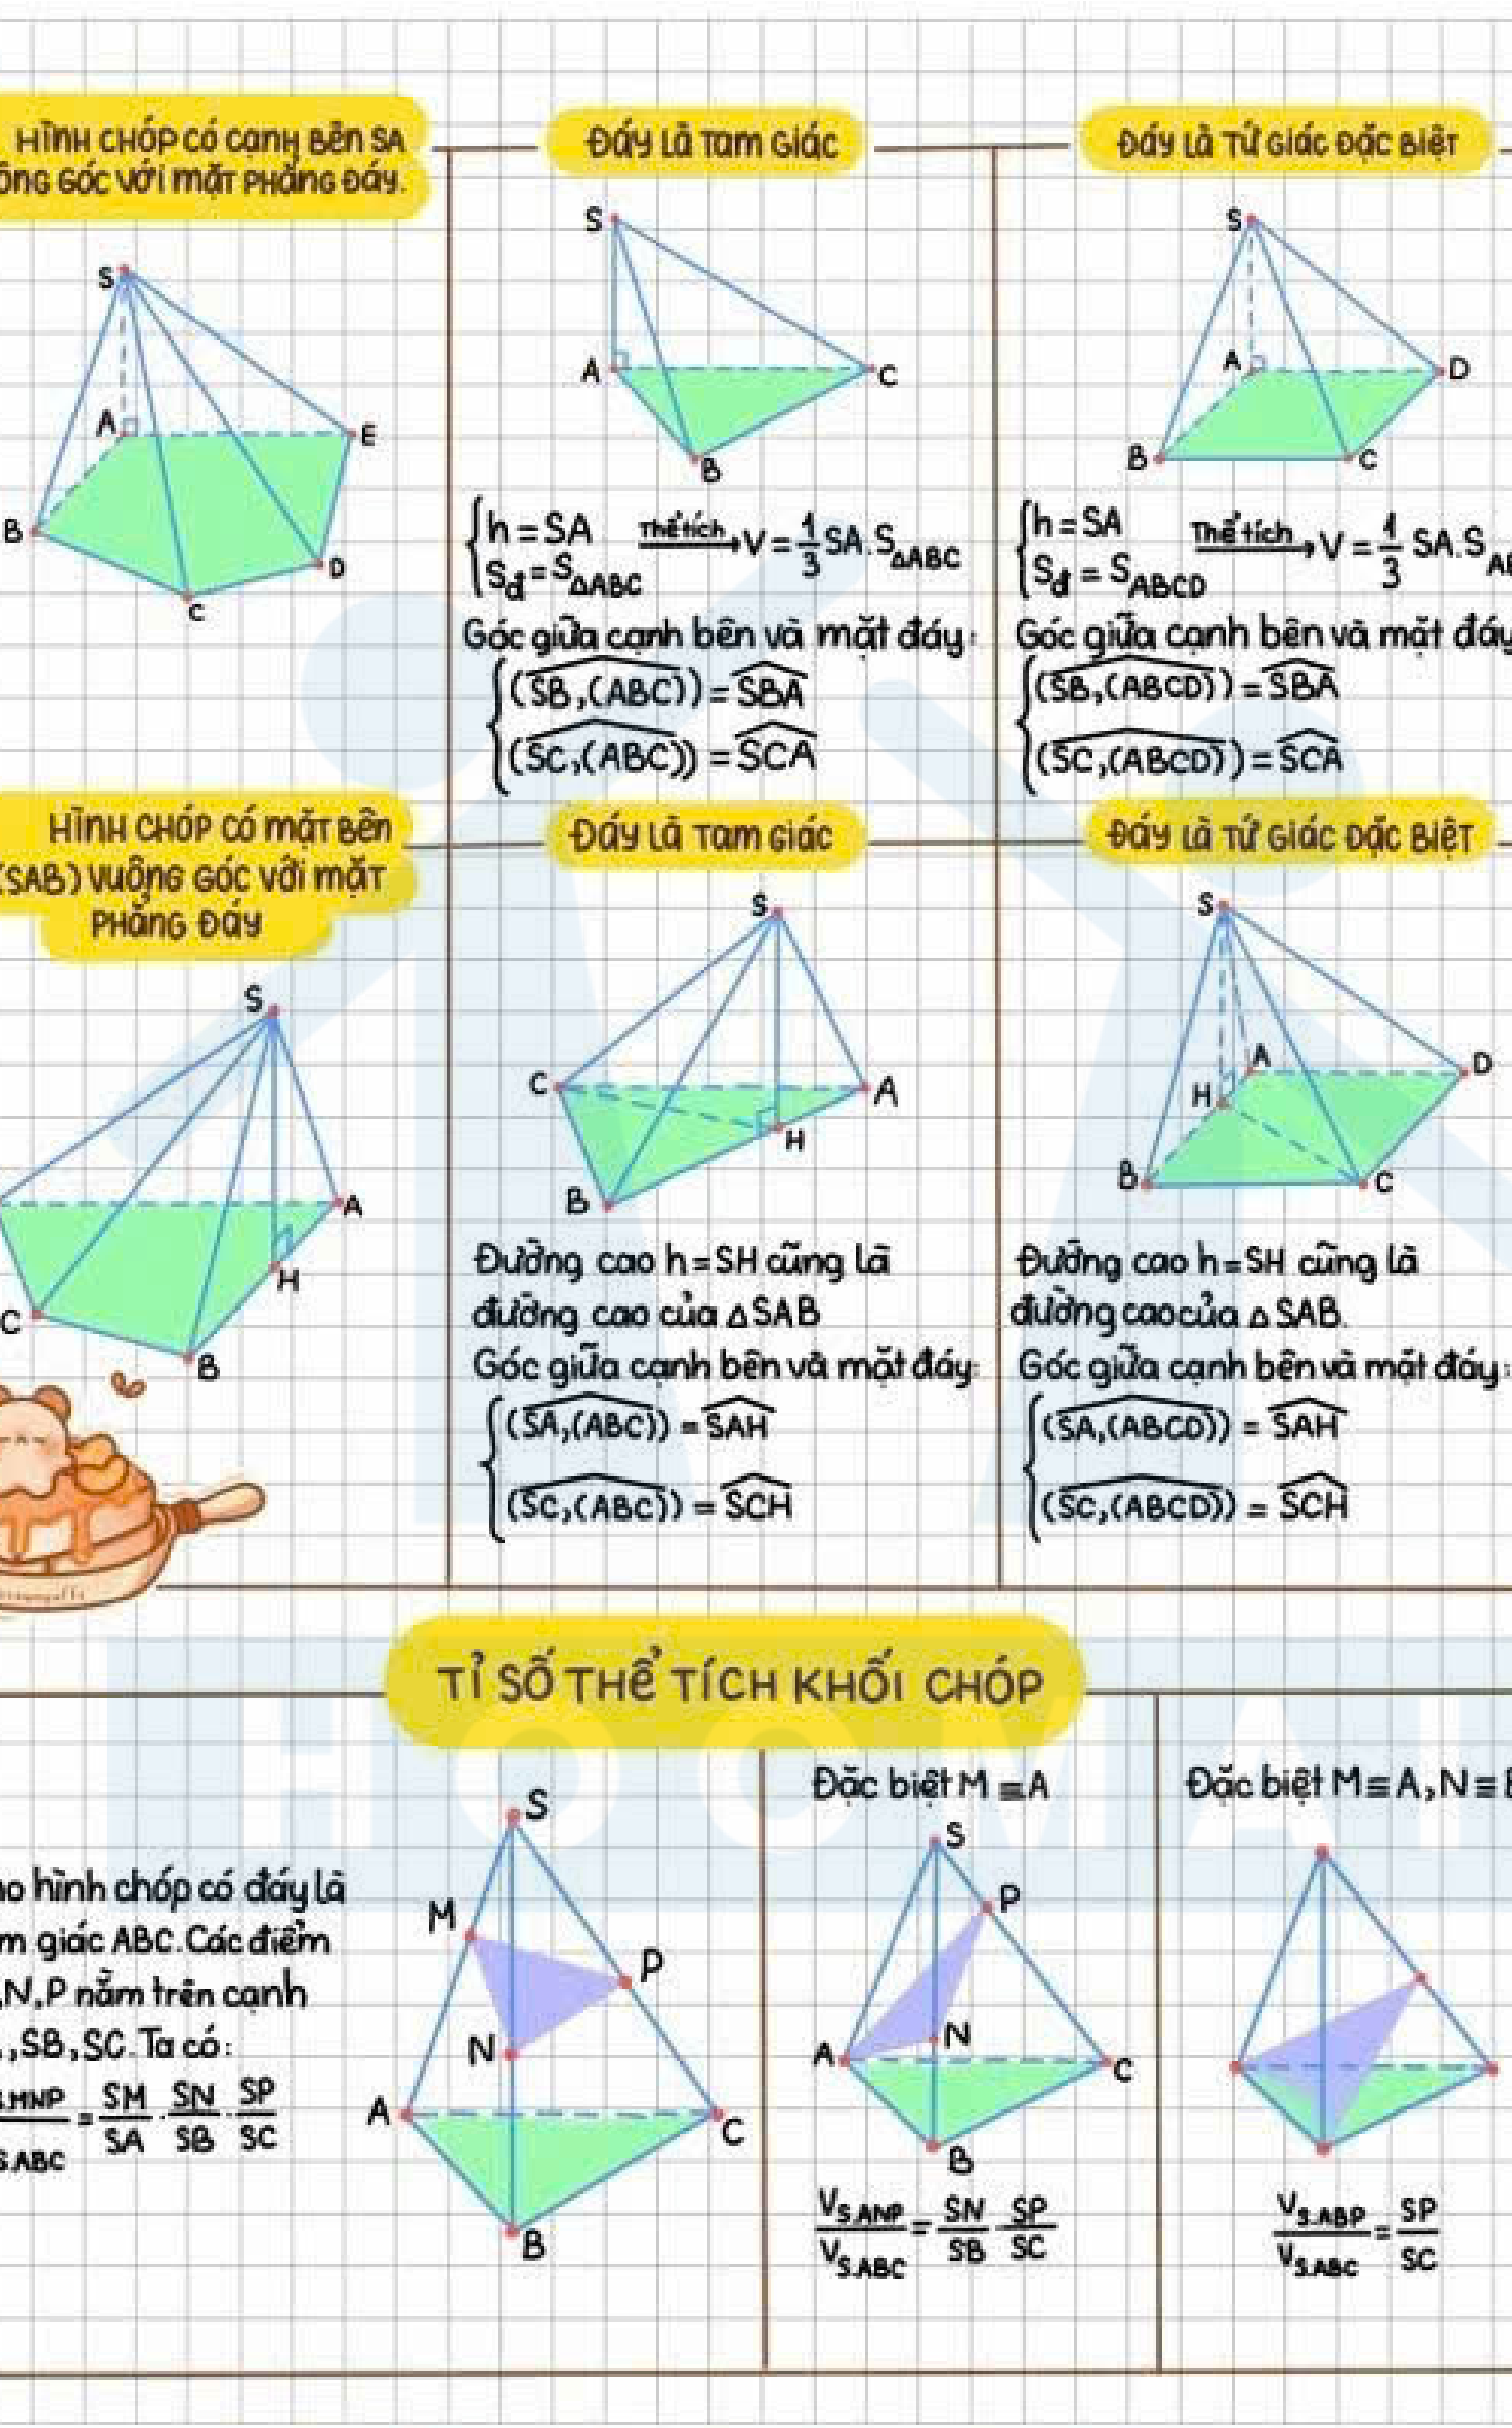 HÌNH CHÓP CÓ CẠNH BÊN SA
ÔNG GÓC VỚI MẶT PHẲNG ĐÁY.
S
A
E
B
D
C
ĐÁY LÀ TAM GIÁC
S
A
C
B
{h = SA
S_đ = S_ΔABC
Thể tích → V = 1/3 SA.S_ΔABC
Góc giữa cạnh bên và mặt đáy:
(SB,(ABC)) = SBA
(SC,(ABC)) = SCA
ĐÁY LÀ TỨ GIÁC ĐẶC BIỆT
S
A
D
B
C
{h = SA
S_đ = S_ABCD
Thể tích → V = 1/3 SA.S
Góc giữa cạnh bên và mặt đáy
(SB,(ABCD)) = SBA
(SC,(ABCD)) = SCA
HÌNH CHÓP CÓ MẶT BÊN
(SAB) VUÔNG GÓC VỚI MẶT
PHẲNG ĐÁY
S
A
H
C
B
ĐÁY LÀ TAM GIÁC
S
C
A
H
B
Đường cao h = SH cũng là
đường cao của Δ SAB
Góc giữa cạnh bên và mặt đáy:
(SA,(ABC)) = SAH
(SC,(ABC)) = SCH
ĐÁY LÀ TỨ GIÁC ĐẶC BIỆT
S
A
D
H
B
C
Đường cao h = SH cũng là
đường cao của Δ SAB.
Góc giữa cạnh bên và mặt đáy:
(SA,(ABCD)) = SAH
(SC,(ABCD)) = SCH
TỈ SỐ THỂ TÍCH KHỐI CHÓP
HOOMAI
o hình chóp có đáy là
m giác ABC. Các điểm
,N,P nằm trên cạnh
,SB,SC. Ta có:
.MNP / S.ABC = SM/SA . SN/SB . SP/SC
S
M
P
N
A
C
B
Đặc biệt M ≡ A
S
P
N
A
C
B
V_S.ANP / V_S.ABC = SN/SB . SP/SC
Đặc biệt M ≡ A, N ≡
V_S.ABP / V_S.ABC = SP/SC